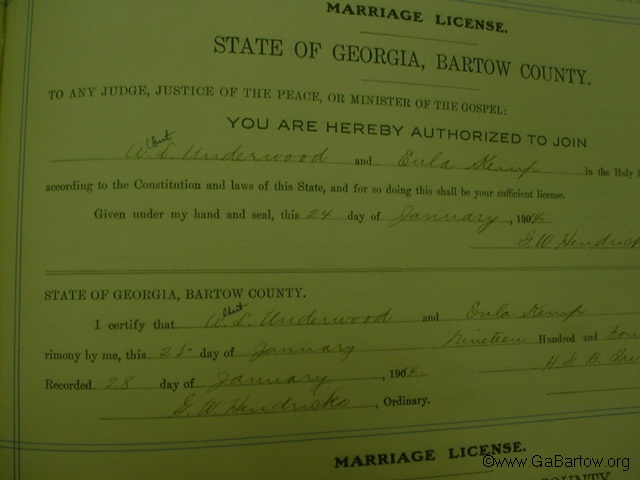 MARRIAGE LICENSE.
STATE OF GEORGIA, BARTOW COUNTY.
TO ANY JUDGE, JUSTICE OF THE PEACE, OR MINISTER OF THE GOSPEL:
YOU ARE HEREBY AUTHORIZED TO JOIN
W. L. Underwood and Eula Kemp in the Holy
according to the Constitution and laws of this State, and for so doing this shall be your sufficient license.
Given under my hand and seal, this 24 day of January, 1904.
G. W. Hendrick
STATE OF GEORGIA, BARTOW COUNTY.
I certify that W. L. Underwood and Eula Kemp
rimony by me, this 25 day of January Nineteen Hundred and Four
Recorded 28 day of January, 1904. H. E. B.
G. W. Hendricks, Ordinary.
MARRIAGE LICENSE.
COUNTY
©www.GaBartow.org